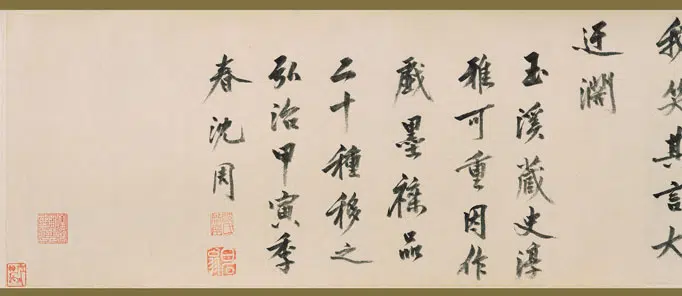 我笑其言大
迂濶
玉溪藏史淳
雅可重因作
戲墨襍品
二十種移之
弘治甲寅季
春沈周